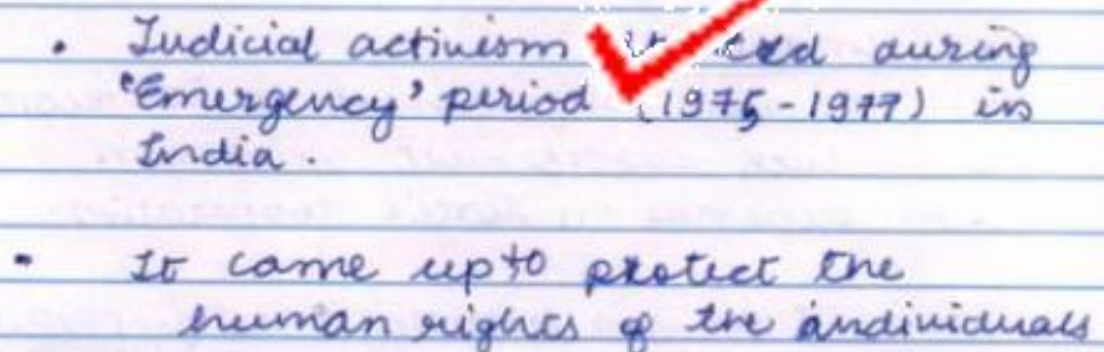 • Judicial activism during
'Emergency' period (1975-1977) in
India.
- It came upto protect the
human rights of the individuals